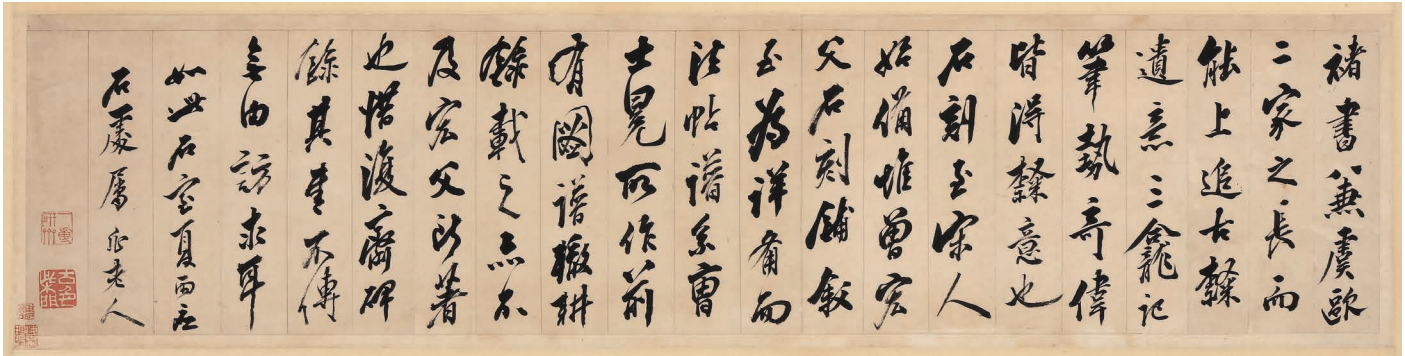 褚書兼虞歐
二家之長而
能上追古隸
遺意三龕記
筆勢奇偉
皆得隸意也
石刻至宋人
始備惟曾宏
父石刻鋪敘
至為詳備而
法帖譜系曹
士冕所作前
有圖譜輟耕
錄載之亦不
及宏父所著
也惜復齋碑
錄其書不傳
無由訪求耳
如此石室夏雨
石屬老人